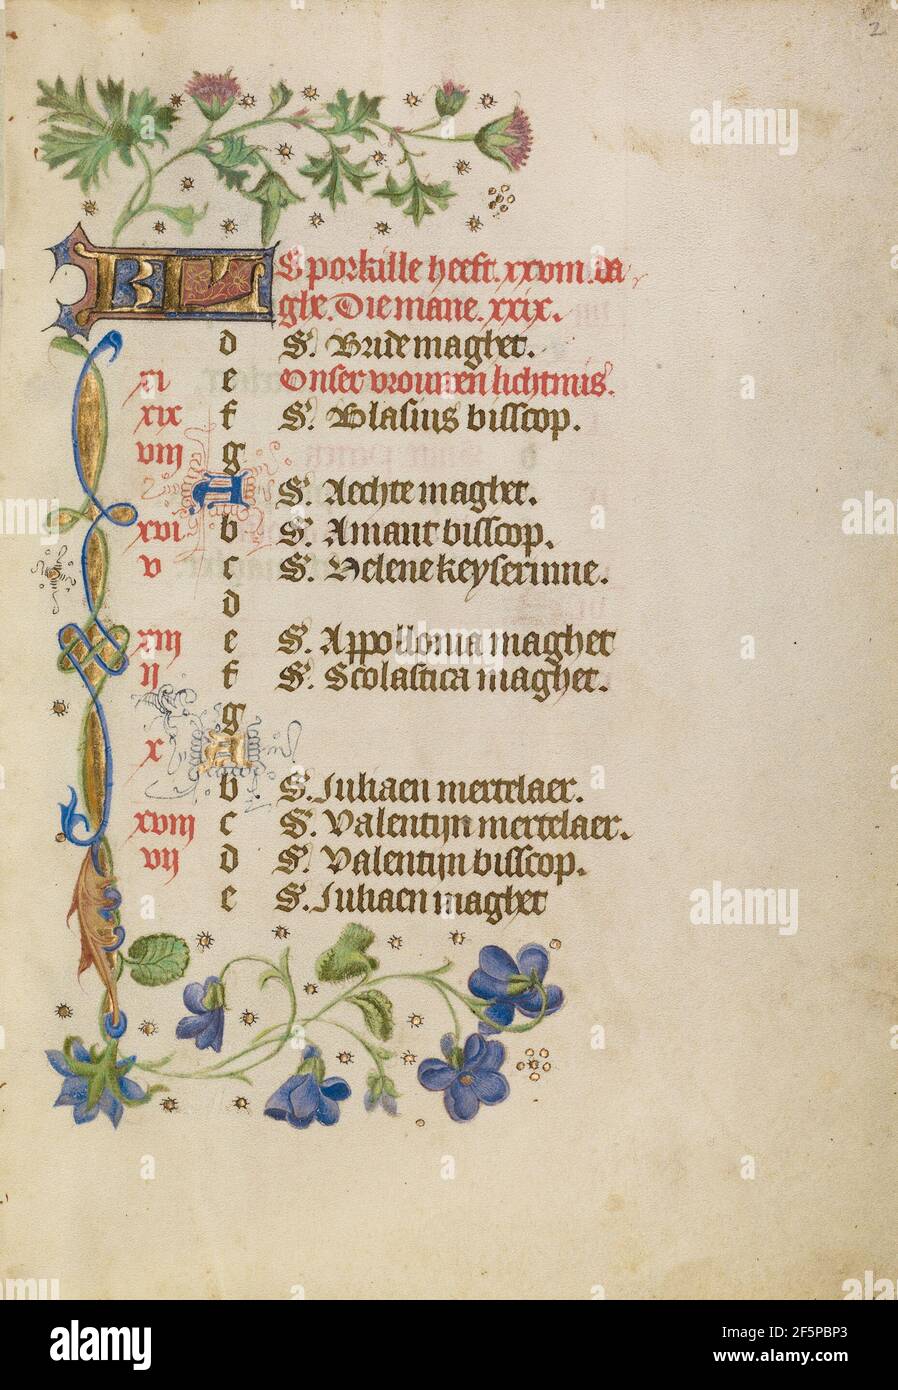 2
KL Sporkille heeft. xxviii. da
ghe. Die mane. xxix.
d S. Bride maghet.
xi e Onser vrouwen lichtmis.
xix f S. Blasius bisscop.
viii g
A S. Aechte maghet.
xvi b S. Amant bisscop.
v c S. Helene keyserinne.
d
xiii e S. Appollonia maghet
ii f S. Scolastica maghet.
g
x A
b S. Juliaen mertelaer.
xviii c S. Valentijn mertelaer.
vij d S. Valentijn bisscop.
e S. Juliaen maghet
alamy
Image ID: 2F5PBP3
www.alamy.com